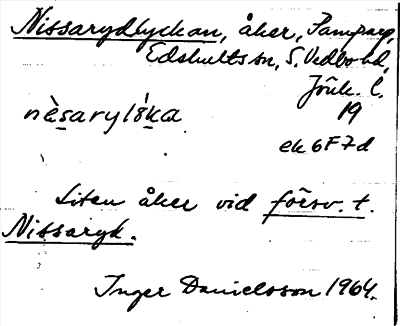 Nissarydlyckan, åker,
Edshults sn, S. Vedbo hd,
Jönk. l.
19
ek 6F7d
Liten åker vid försv. t.
Nissaryk.
Inger Danielsson 1964.